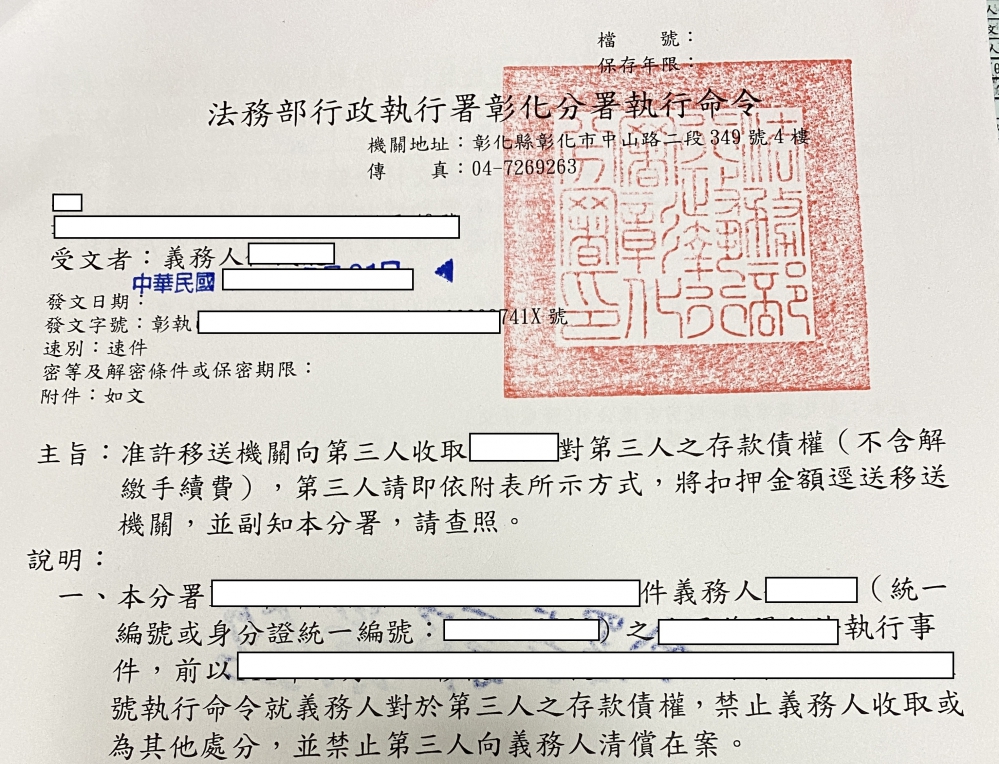 檔　　號：
保存年限：
法務部行政執行署彰化分署執行命令
機關地址：彰化縣彰化市中山路二段 349 號 4 樓
傳　　真：04-7269263
受文者：義務人
中華民國
發文日期：
發文字號：彰執 741X 號
速別：速件
密等及解密條件或保密期限：
附件：如文
主旨：准許移送機關向第三人收取 對第三人之存款債權（不含解
繳手續費），第三人請即依附表所示方式，將扣押金額逕送移送
機關，並副知本分署，請查照。
說明：
一、本分署 件義務人 （統一
編號或身分證統一編號： ）之 執行事
件，前以
號執行命令就義務人對於第三人之存款債權，禁止義務人收取或
為其他處分，並禁止第三人向義務人清償在案。